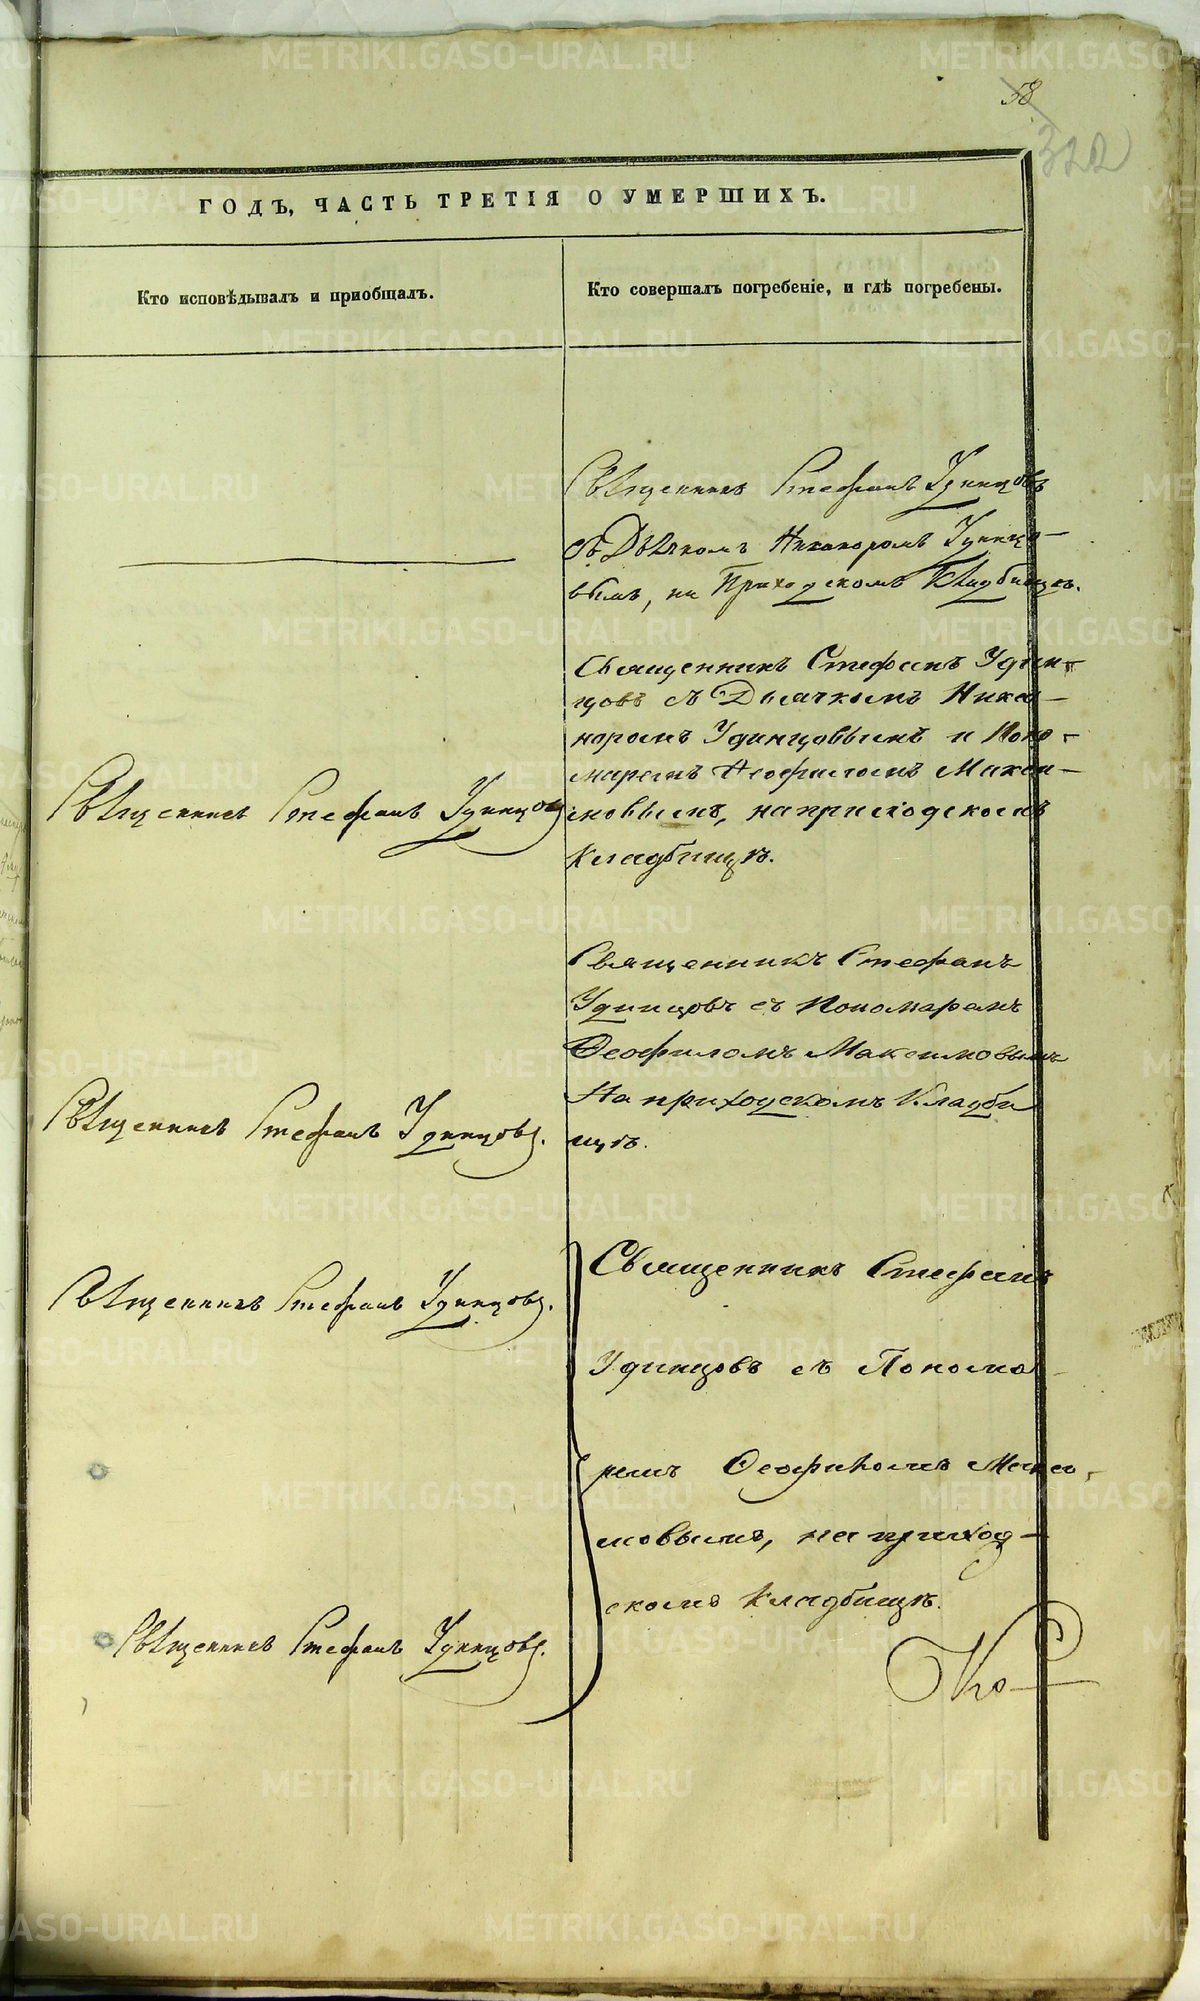 58
322
ГОДЪ, ЧАСТЬ ТРЕТІЯ О УМЕРШИХЪ.
Кто исповѣдывалъ и пріобщалъ.
Кто совершалъ погребеніе, и гдѣ погребены.
Священникъ Стефанъ Удинцовъ
съ Дьячкомъ Никаноромъ Удинцо-
вымъ, на Приходскомъ Кладбищѣ.
Священникъ Стефанъ Удин-
цовъ съ Дьячкомъ Ника-
норомъ Удинцовымъ и Поно-
маремъ Ѳеофиломъ Макси-
мовымъ, на приходскомъ
кладбищѣ.
Священникъ Стефанъ Удинцовъ
Священникъ Стефанъ
Удинцовъ съ Пономаремъ
Ѳеофиломъ Максимовымъ
На приходскомъ Кладби
щѣ.
Священникъ Стефанъ Удинцовъ.
Священникъ Стефанъ
Удинцовъ съ Понома
ремъ Ѳеофиломъ Макси-
мовымъ, на приход-
скомъ кладбищѣ.
Священникъ Стефанъ Удинцовъ.
Священникъ Стефанъ Удинцовъ.
METRIKI.GASO-URAL.RU